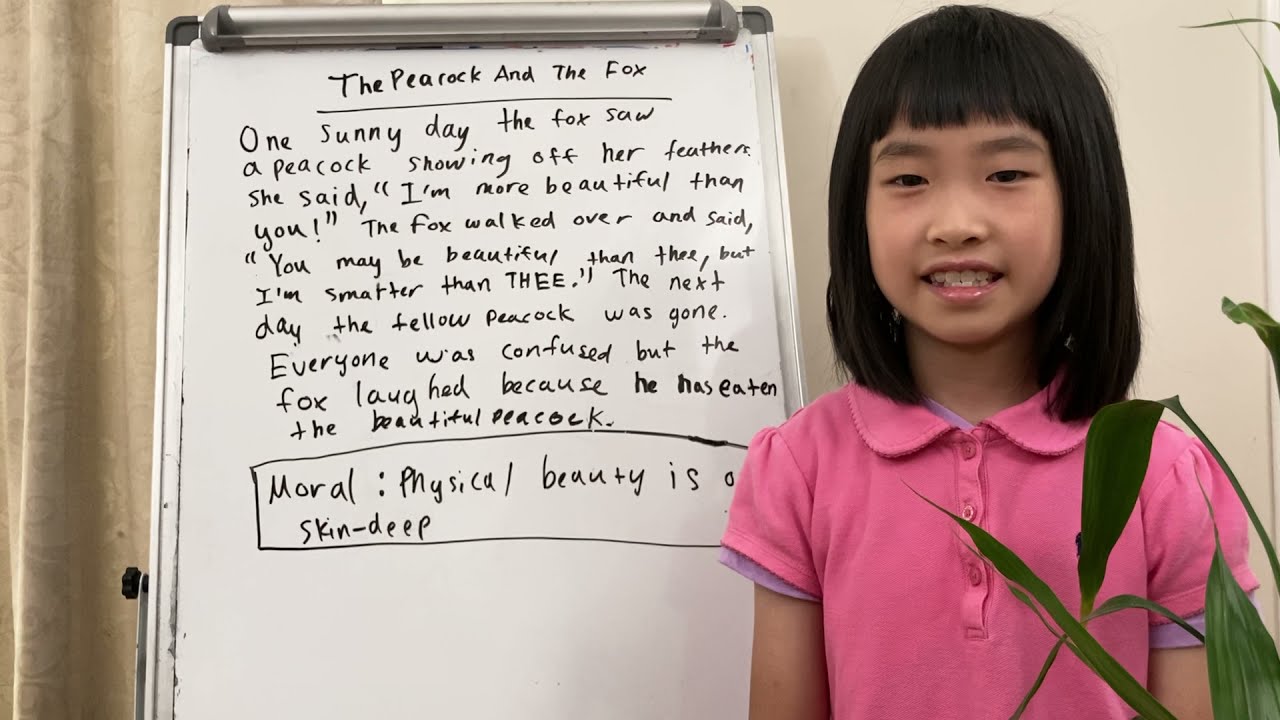 The Peacock And The Fox
One sunny day the fox saw
a peacock showing off her feathers.
she said, "I'm more beautiful than
you!" The fox walked over and said,
"You may be beautiful than thee, but
I'm smatter than THEE." The next
day the fellow peacock was gone.
Everyone was confused but the
fox laughed because he has eaten
the beautiful peacock.
Moral: Physical beauty is
skin-deep